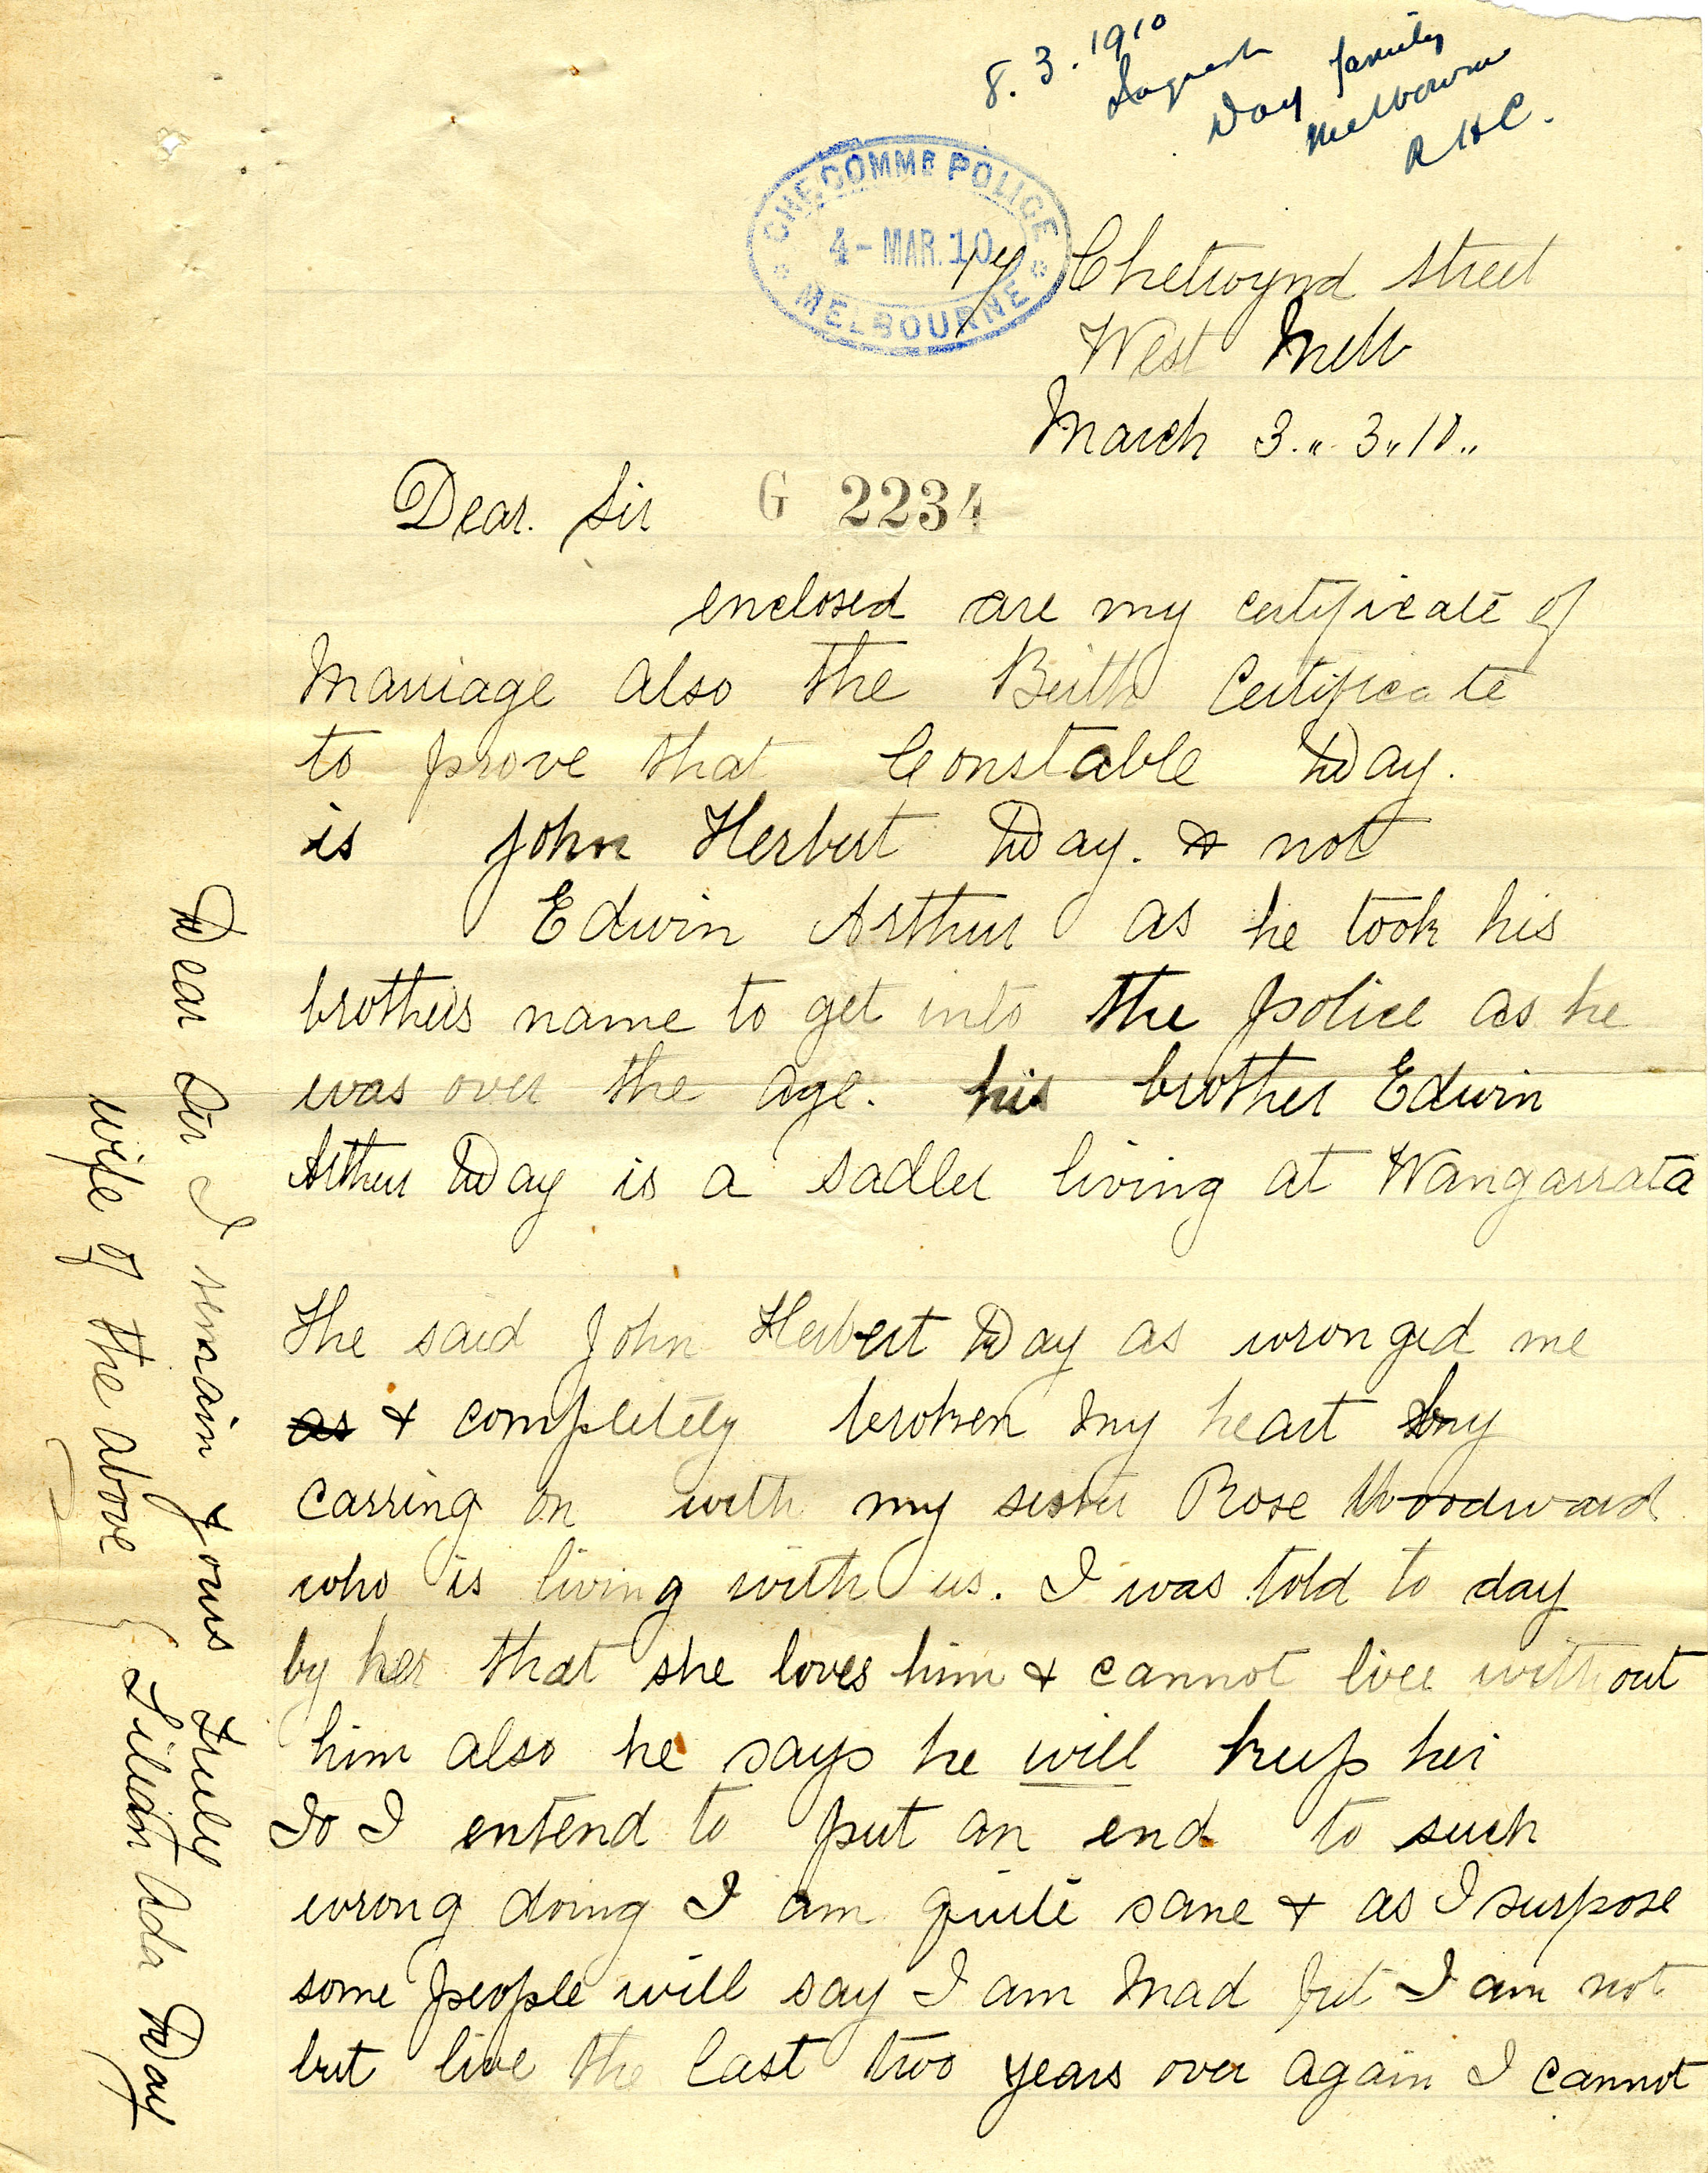 8.3.1910
Inquest
Day family
Melbourne
R H C.
CHF COMMR POLICE
4 - MAR.10
MELBOURNE
17 Chetwynd Street
West Melb
March 3.,, 3,, 10,,
Dear. Sir
G 2234
enclosed are my certificate of
Marriage also the Birth Certificate
to prove that Constable Day.
is John Herbert Day. & not
Edwin Arthur as he took his
brothers name to get into the police as he
was over the age. his brother Edwin
Arthur Day is a sadler living at Wangarrata
The said John Herbert Day as wronged me
as & completely broken my heart by
carring on with my sister Rose Woodward
who is living with us. I was told to day
by her that she loves him & cannot live without
him also he says he will keep her
So I entend to put an end to such
wrong doing I am quite sane & as I surpose
some people will say I am Mad but I am not
but live the last two years over again I cannot
Dear Sir I remain Yours Truly
wife of the above Lilian Ada Day